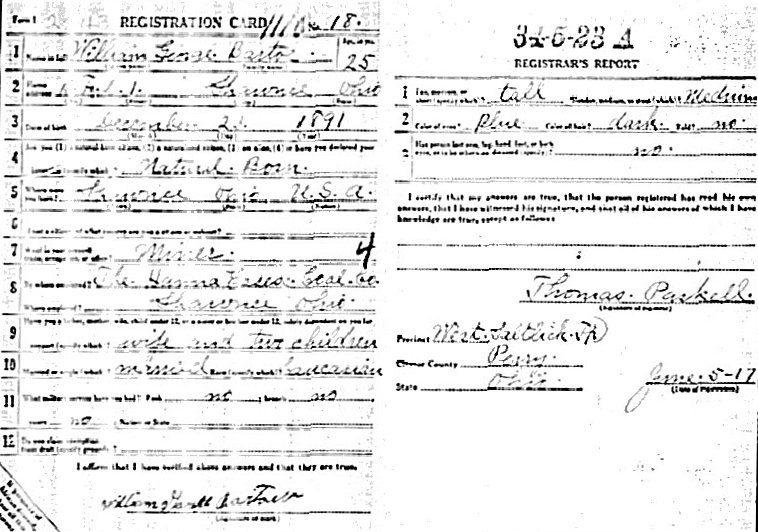 Form 1
REGISTRATION CARD No. 18
1 Name in full William George
Age, in yrs. 25
2 Home address Shawnee Ohio
3 Date of birth December 1891
4 Are you (1) a natural-born citizen, (2) a naturalized citizen, (3) an alien, (4) or have you declared your
intention (specify which)? Natural Born
5 Where were you born? Shawnee Ohio U.S.A.
6 If not a citizen, of what country are you a citizen or subject?
7 What is your present trade, occupation, or office? Miner 4
8 By whom employed? The Hanna Coal Co
Where employed? Shawnee Ohio
9 Have you a father, mother, wife, child under 12, or a sister or brother under 12, solely dependent on you for
support (specify which)? wife and two children
10 Married or single (which)? married Race (specify which)? Caucasian
11 What military service have you had? Rank no ; branch no
years no ; Nation or State
12 Do you claim exemption from draft (specify grounds)?
I affirm that I have verified above answers and that they are true.
William
34-5-23 A
REGISTRAR'S REPORT
1 Tall, medium, or short (specify which)? tall Slender, medium, or stout (which)? Medium
2 Color of eyes? Blue Color of hair? dark Bald? no
3 Has person lost arm, leg, hand, foot, or both eyes, or is he otherwise disabled (specify)? no
I certify that my answers are true, that the person registered has read his own
answers, that I have witnessed his signature, and that all of his answers of which I have
knowledge are true, except as follows:
Thomas Paskell
(Signature of registrar)
Precinct West Saltlick Tp
City or County Perry
State Ohio
June 5-17
(Date of registration)